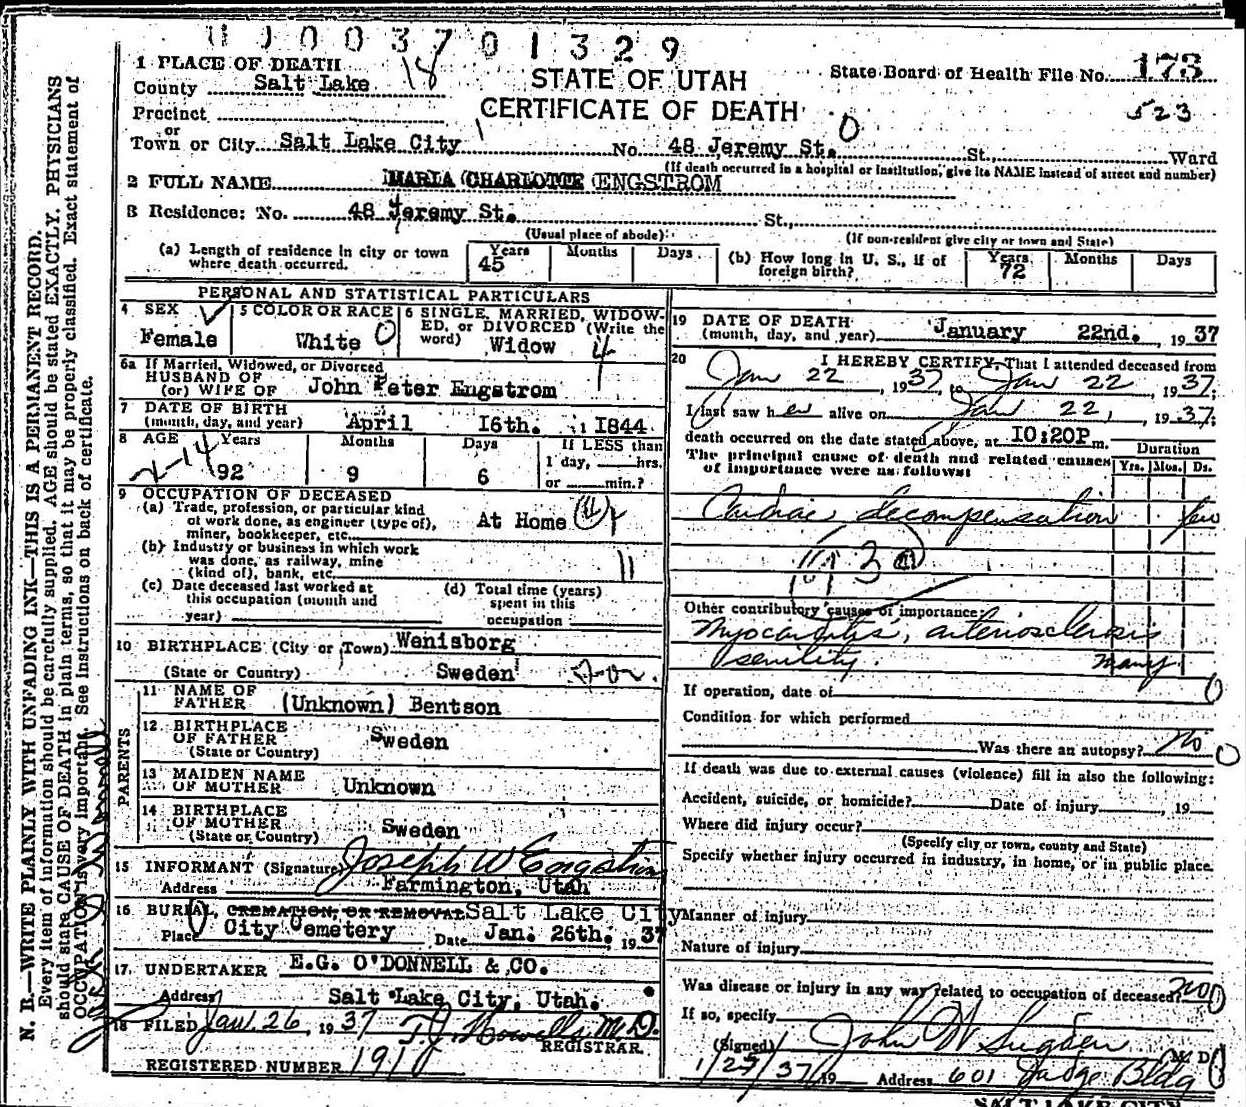 0 0 0 3 7 0 1 3 2 9
1 PLACE OF DEATH
County Salt Lake 18
STATE OF UTAH
CERTIFICATE OF DEATH
State Board of Health File No. 173
523
Precinct
or
Town or City Salt Lake City No. 48 Jeremy St. 0 St., Ward
(If death occurred in a hospital or institution, give its NAME instead of street and number)
2 FULL NAME MARIA CHARLOTTE ENGSTROM
3 Residence: No. 48 Jeremy St. St.,
(Usual place of abode) (If non-resident give city or town and State)
(a) Length of residence in city or town where death occurred. Years 45 Months Days
(b) How long in U. S., if of foreign birth? Years 72 Months Days
PERSONAL AND STATISTICAL PARTICULARS
4 SEX Female
5 COLOR OR RACE White 0
6 SINGLE, MARRIED, WIDOWED, or DIVORCED (Write the word) Widow 4
6a If Married, Widowed, or Divorced
HUSBAND OF
(or) WIFE OF John Peter Engstrom
7 DATE OF BIRTH
(month, day, and year) April 16th. 1844
8 AGE Years 92 Months 9 Days 6
If LESS than
1 day, hrs.
or min.?
2-14
9 OCCUPATION OF DECEASED
(a) Trade, profession, or particular kind
of work done, as engineer (type of),
miner, bookkeeper, etc. At Home
(b) Industry or business in which work
was done, as railway, mine
(kind of), bank, etc. 11
(c) Date deceased last worked at
this occupation (month and
year)
(d) Total time (years)
spent in this
occupation
10 BIRTHPLACE (City or Town) Wenisborg
(State or Country) Sweden
PARENTS
11 NAME OF
FATHER (Unknown) Bentson
12 BIRTHPLACE
OF FATHER Sweden
(State or Country)
13 MAIDEN NAME
OF MOTHER Unknown
14 BIRTHPLACE
OF MOTHER Sweden
(State or Country)
15 INFORMANT (Signature) Joseph W Engstrom
Address Farmington, Utah
16 BURIAL, CREMATION, OR REMOVAL Salt Lake City
Place City Cemetery Date Jan. 26th. 1937
17. UNDERTAKER E.G. O'DONNELL & CO.
Address Salt Lake City, Utah.
18 FILED Jan 26, 1937 T.J. Howells M.D.
REGISTRAR.
REGISTERED NUMBER 191
19 DATE OF DEATH
(month, day, and year) January 22nd. 1937
20 I HEREBY CERTIFY, That I attended deceased from
Jan 22, 1937, to Jan 22, 1937;
I last saw her alive on Jan 22, 1937;
death occurred on the date stated above, at 10:20P m.
The principal cause of death and related causes
of importance were as follows:
Duration
Yrs. Mos. Ds.
Cardiac decompensation few
Other contributory causes of importance:
Myocarditis, arteriosclerosis
senility. many
If operation, date of 0
Condition for which performed
Was there an autopsy? No 0
If death was due to external causes (violence) fill in also the following:
Accident, suicide, or homicide? Date of injury , 19
Where did injury occur?
(Specify city or town, county and State)
Specify whether injury occurred in industry, in home, or in public place.
Manner of injury
Nature of injury
Was disease or injury in any way related to occupation of deceased? no 0
If so, specify
(Signed) John W Sugden M. D.
1/25/37 19 Address 601 Judge Bldg
SALT LAKE CITY
N. B.—WRITE PLAINLY WITH UNFADING INK—THIS IS A PERMANENT RECORD.
Every item of information should be carefully supplied. AGE should be stated EXACTLY. PHYSICIANS
should state CAUSE OF DEATH in plain terms, so that it may be properly classified. Exact statement of
OCCUPATION is very important. See instructions on back of certificate.